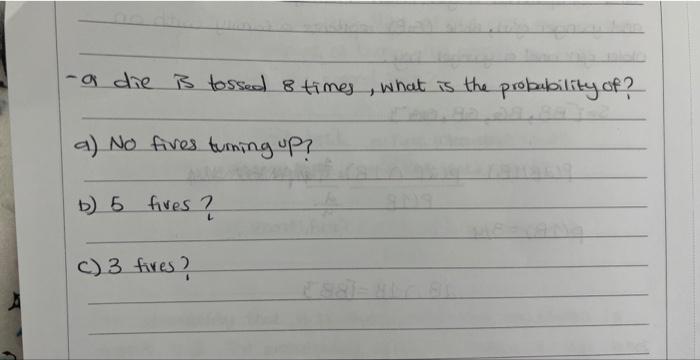 - a die is tossed 8 times, what is the probability of?
a) No fives turning up?
b) 5 fives?
c) 3 fives?